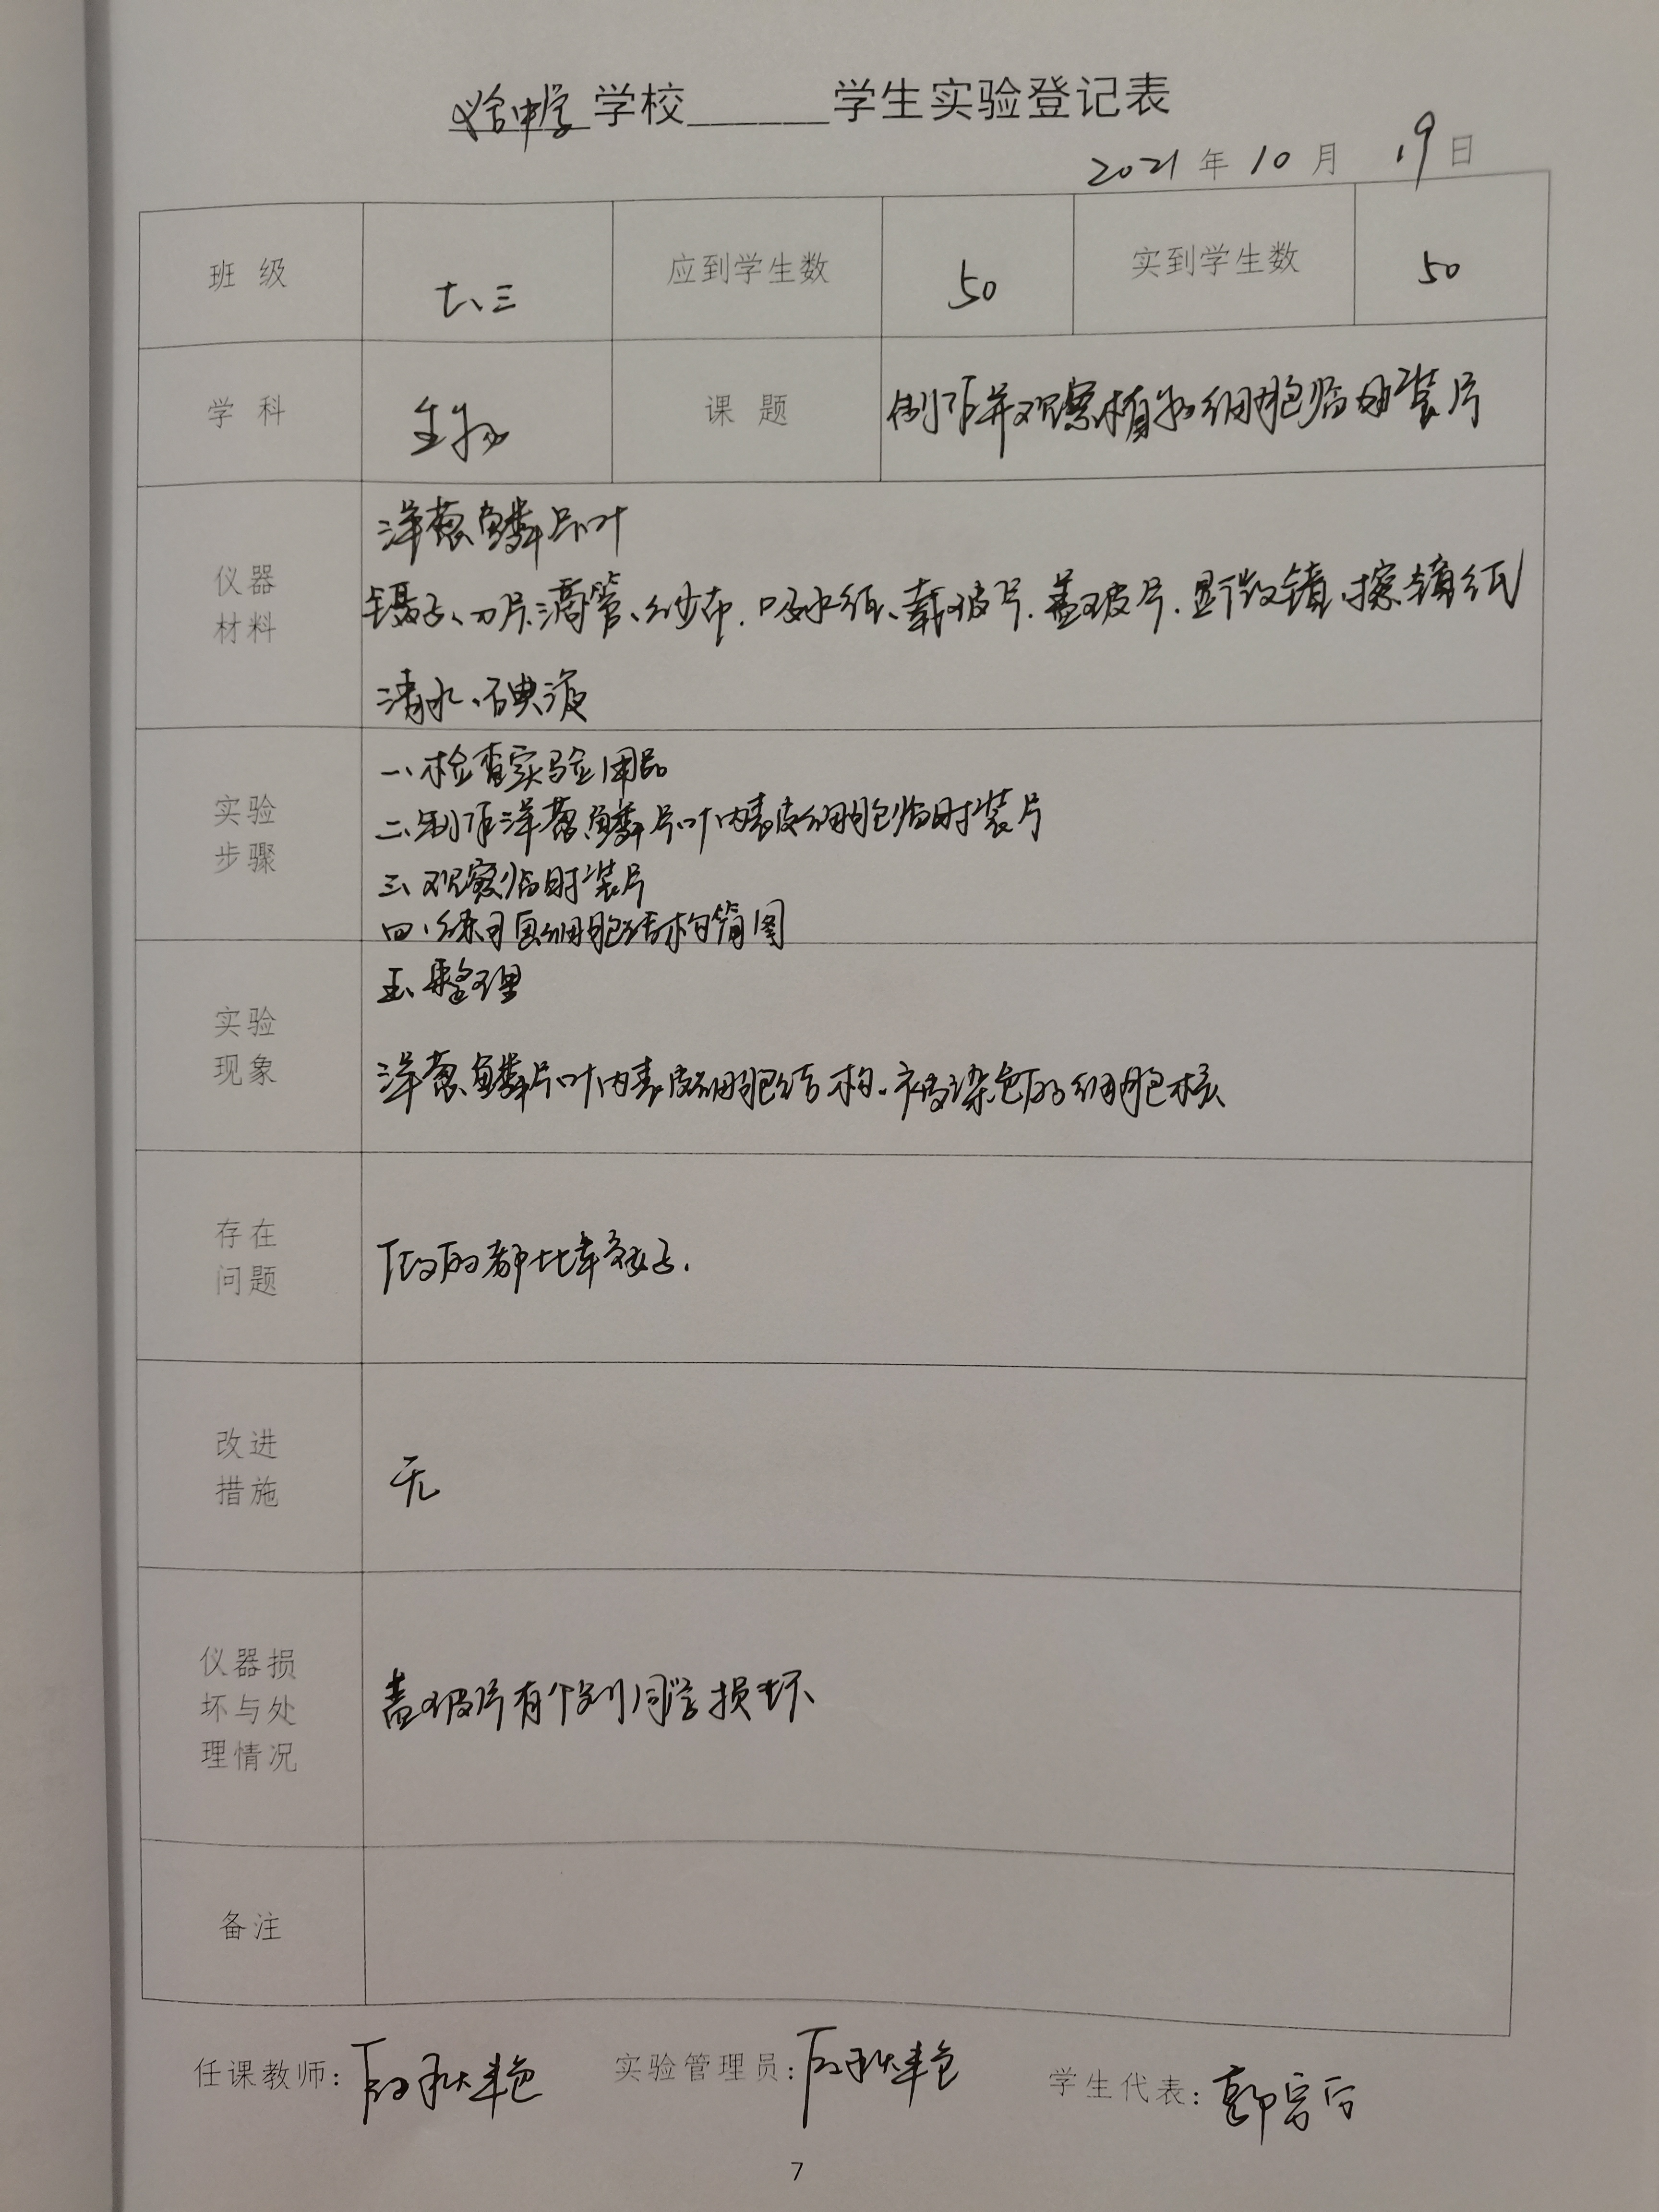 义合中学学校______学生实验登记表
2021年10月19日
班级 七、三 应到学生数 50 实到学生数 50
学科 生物 课题 制作并观察植物细胞临时装片
仪器
材料
洋葱鳞片叶
镊子、刀片、滴管、纱布、吸水纸、载玻片、盖玻片、显微镜、擦镜纸
清水、碘液
实验
步骤
一、检查实验用品
二、制作洋葱鳞片叶内表皮细胞临时装片
三、观察临时装片
四、练习画细胞结构简图
实验
现象
五、整理
洋葱鳞片叶内表皮细胞结构、被染色的细胞核
存在
问题
做的都比较好.
改进
措施
无
仪器损
坏与处
理情况
盖玻片有个别同学损坏
备注
任课教师: 实验管理员: 学生代表:
7